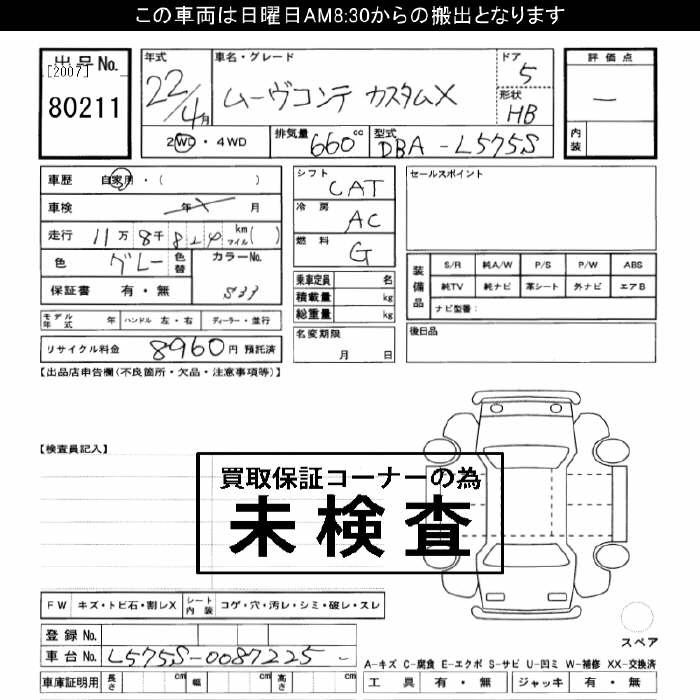 この車両は日曜日AM8:30からの搬出となります
出品No.
[2007]
80211
年式
22/4月
車名・グレード
ムーヴコンテ カスタムX
ドア
5
形状
HB
2WD・4WD
排気量
660cc
型式
DBA-L575S
評価点
―
内装
車歴 自家用・( )
車検 年 月
走行 11万8千824 km マイル( )
色 グレー 色替
カラーNo.
S39
保証書 有・無
モデル年式 年 ハンドル 左・右 ディーラー・並行
リサイクル料金 8960円 預託済
シフト
CAT
冷房
AC
燃料
G
乗車定員 名
積載量 kg
総重量 kg
名変期限
月 日
セールスポイント
装備品
S/R 純A/W P/S P/W ABS
純TV 純ナビ 革シート 外ナビ エアB
ナビ型番:
後日品
【出品店申告欄(不良箇所・欠品・注意事項等)】
【検査員記入】
買取保証コーナーの為
未検査
FW キズ・トビ石・割レX シート内装 コゲ・穴・汚レ・シミ・破レ・スレ
登録No.
車台No. L575S-0087225-
車庫証明用 長さ cm 幅 cm 高さ cm
スペア
A-キズ C-腐食 E-エクボ S-サビ U-凹ミ W-補修 XX-交換済
工具 有・無 ジャッキ 有・無